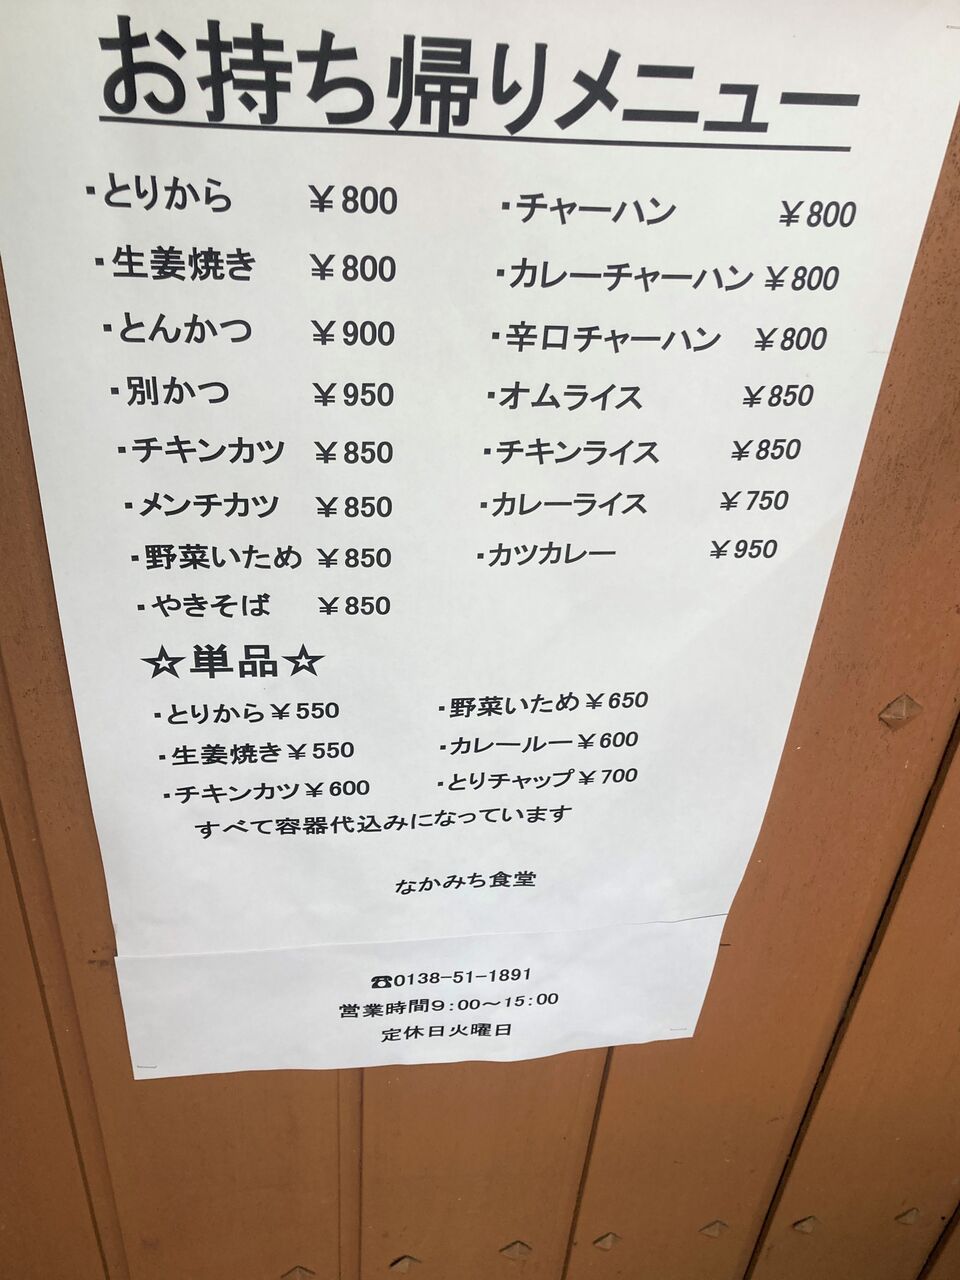 お持ち帰りメニュー
・とりから ￥800
・生姜焼き ￥800
・とんかつ ￥900
・別かつ ￥950
・チキンカツ ￥850
・メンチカツ ￥850
・野菜いため ￥850
・やきそば ￥850
・チャーハン ￥800
・カレーチャーハン ￥800
・辛口チャーハン ￥800
・オムライス ￥850
・チキンライス ￥850
・カレーライス ￥750
・カツカレー ￥950
☆単品☆
・とりから￥550
・生姜焼き￥550
・チキンカツ￥600
・野菜いため￥650
・カレールー￥600
・とりチャップ￥700
すべて容器代込みになっています
なかみち食堂
☎0138-51-1891
営業時間9:00～15:00
定休日火曜日